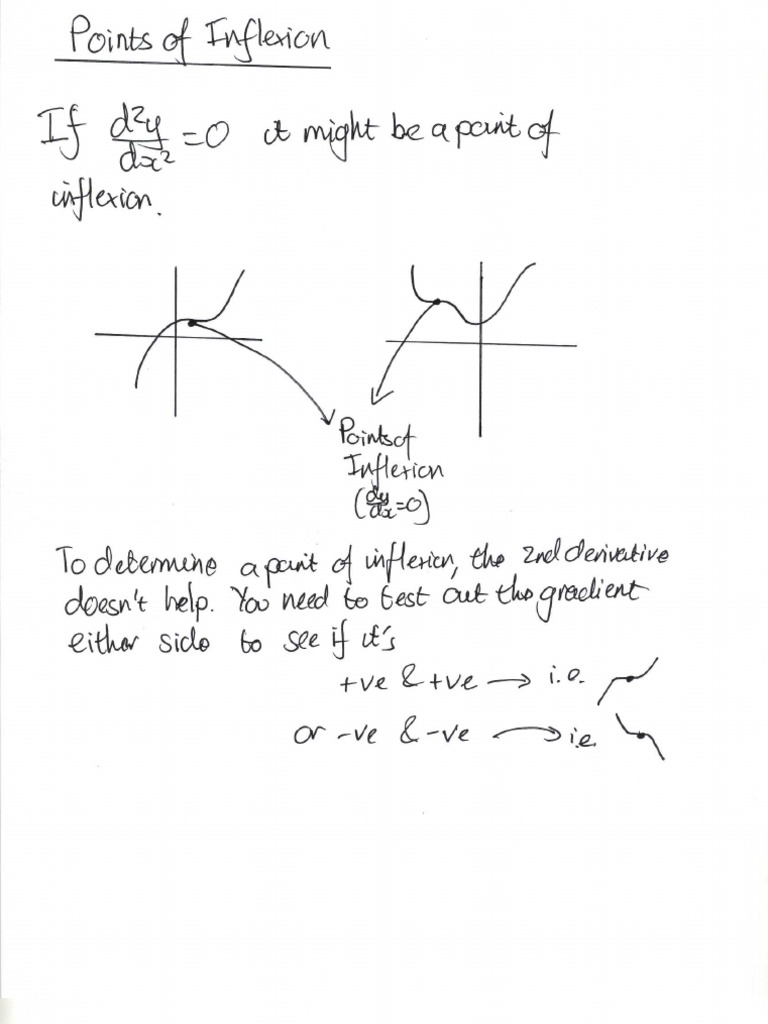 Points of Inflexion
If d²y/dx² = 0 it might be a point of
inflexion.
Points of
Inflexion
(dy/dx = 0)
To determine a point of inflexion, the 2nd derivative
doesn't help. You need to test out the gradient
either side to see if it's
+ve & +ve → i.e.
or -ve & -ve → i.e.